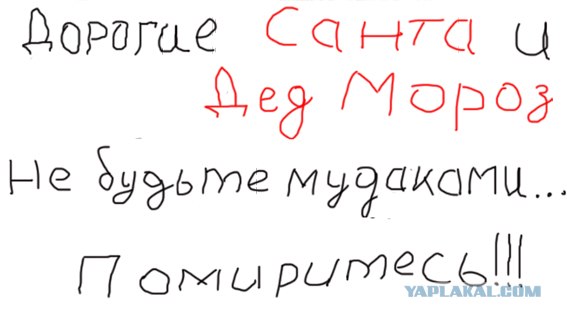 Дорогие Санта и
Дед Мороз
Не будьте мудаками...
Помиритесь!!!
YAPLAKAL.COM